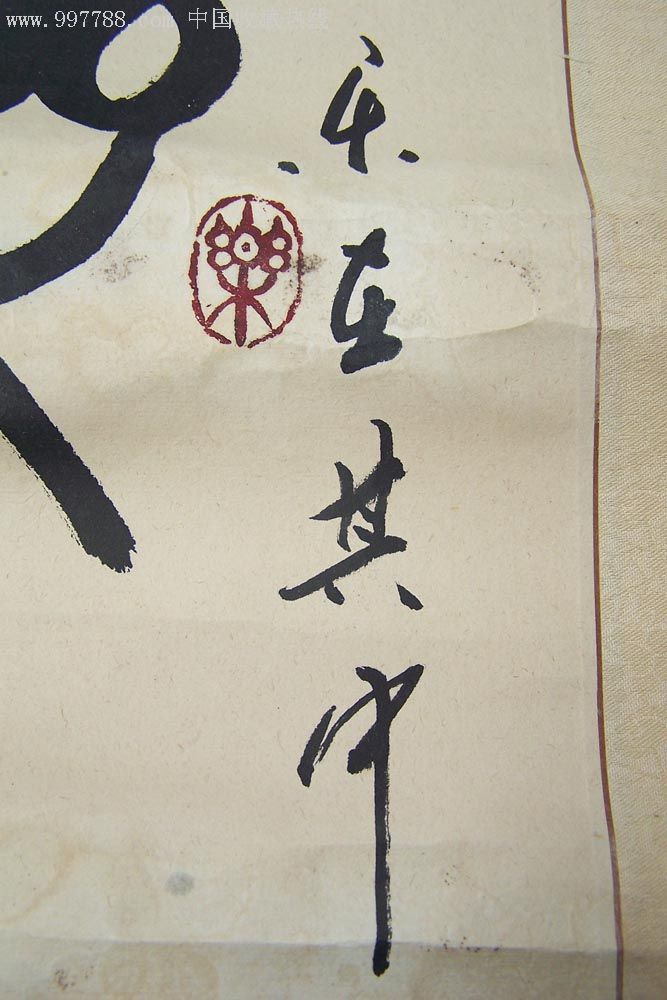 www.997788.com 中国收藏热线
乐在其中
樂